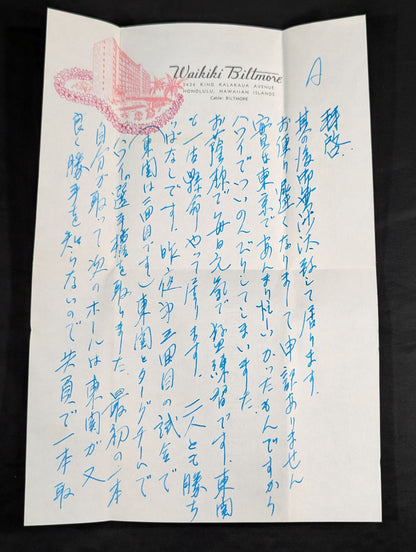 Waikiki Biltmore
2424 KING KALAKAUA AVENUE
HONOLULU, HAWAIIAN ISLANDS
Cable: BILTMORE
A
拝啓
其の後御無沙汰致して居ります。
お便り遅くなりまして申訳ありません
実は東京であんまり忙しかったもんですから
ハワイでついのんびりしてしまいました。
お蔭様で毎日元気で猛練習です。東関
と一生懸命やって居ります。二人とも勝ち
ぱなしです。昨夜第五回目の試合で
（東関は二回目です）東関とタッグチームで
ハワイ選手権を取りました。最初の一本
自分が取って次のホールは東関が又
良く勝手を知らないので失負で一本取